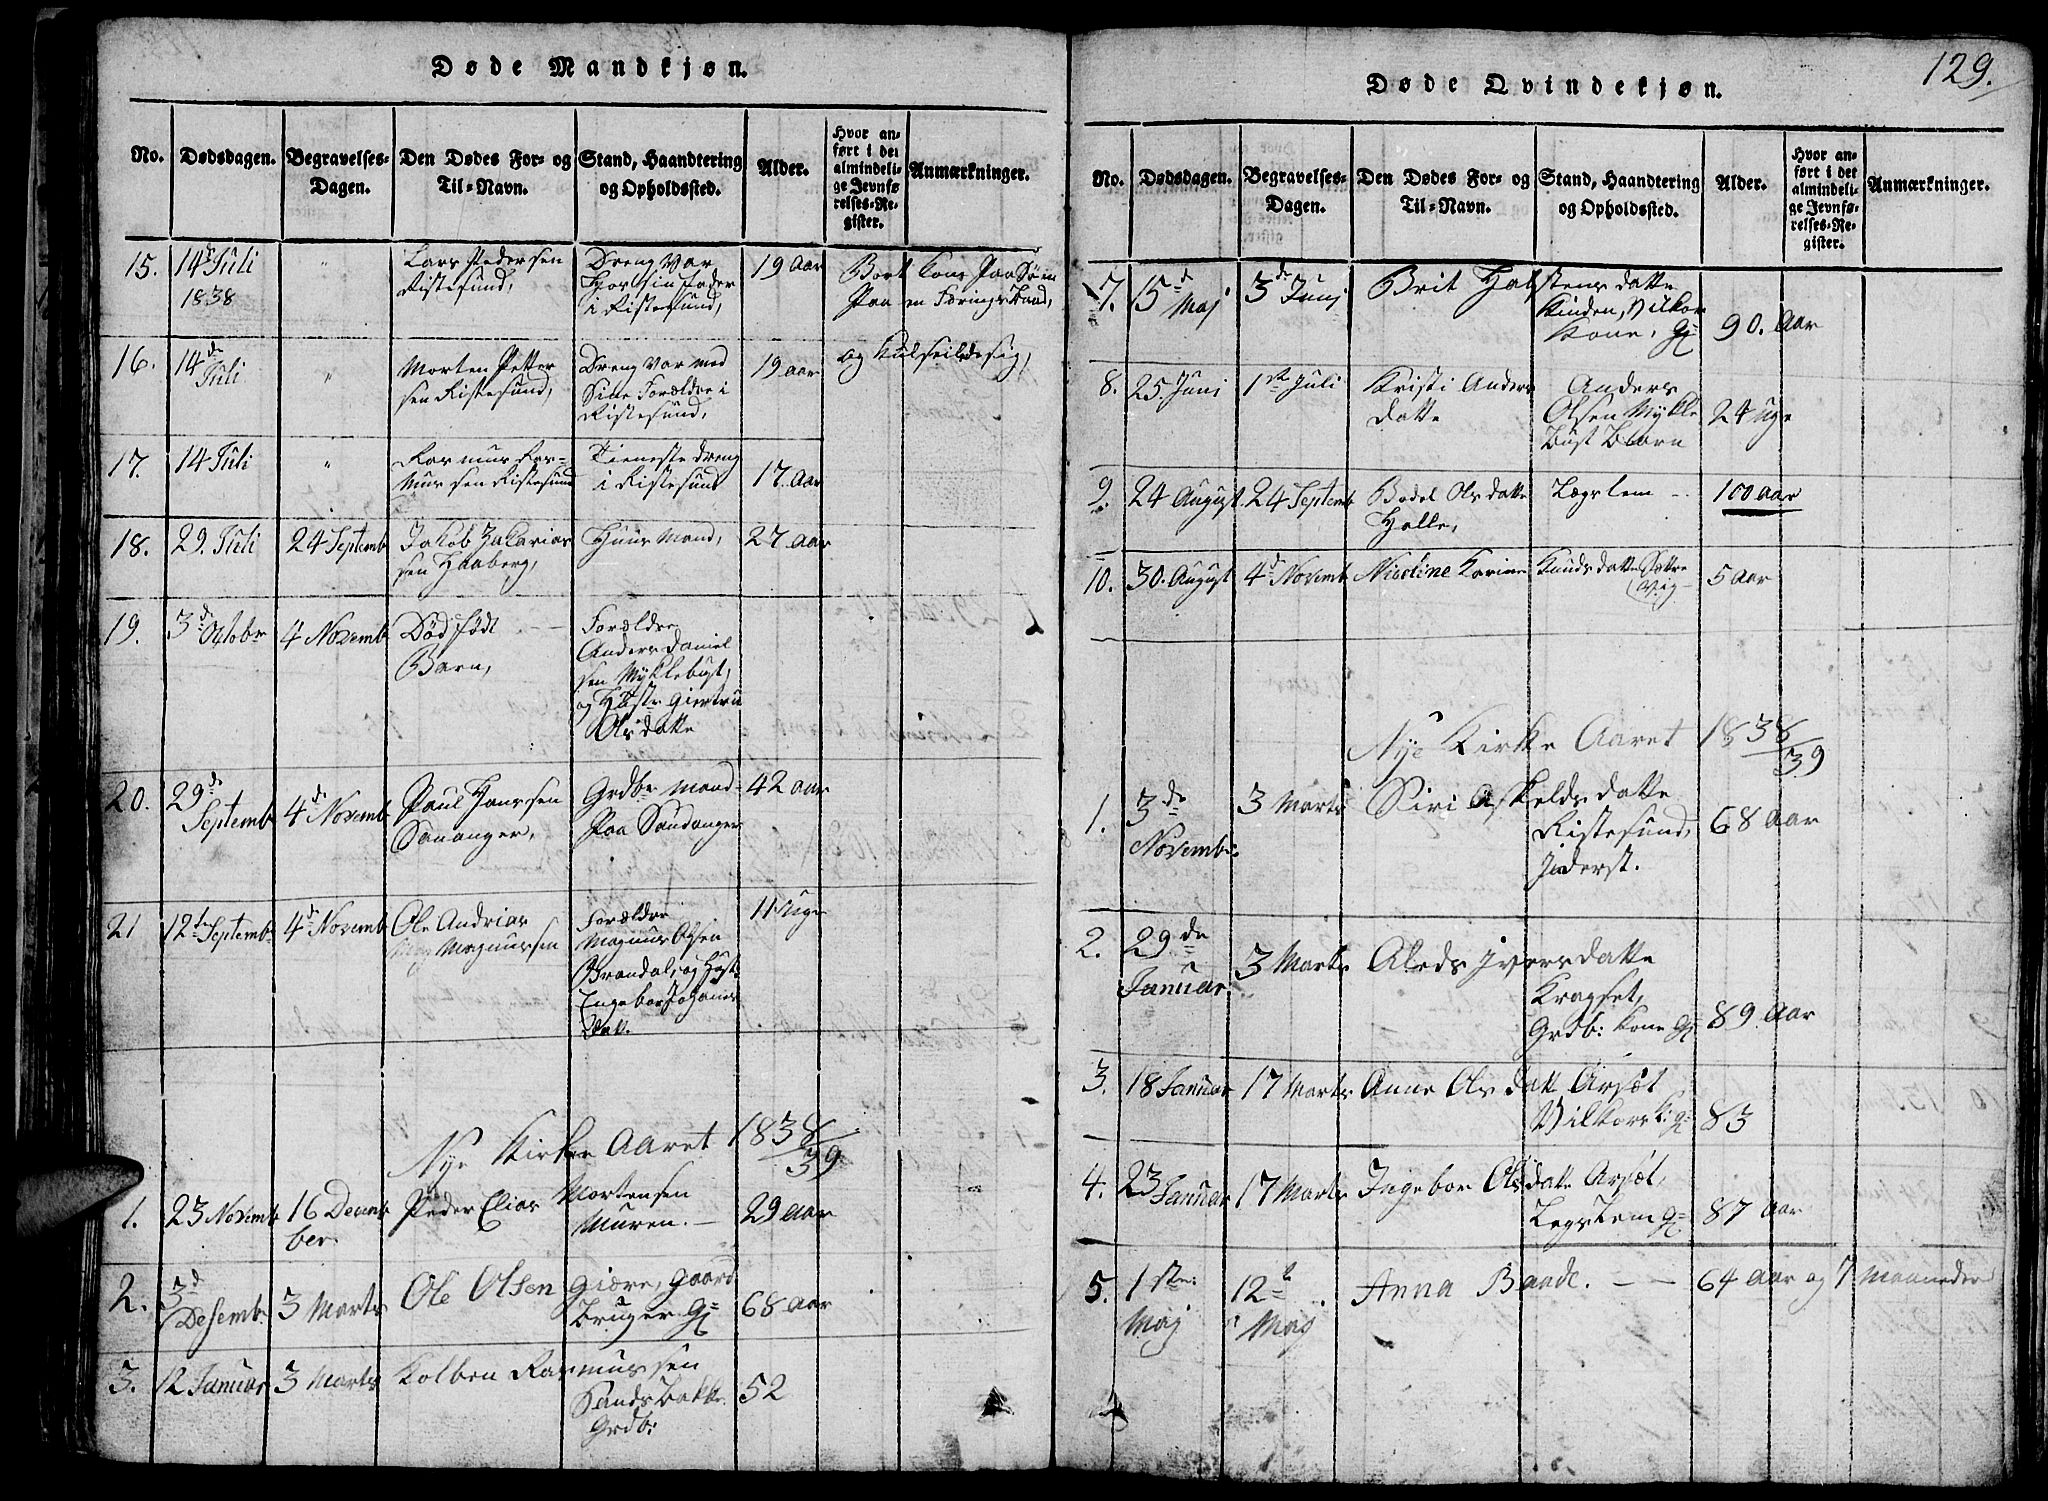 Døde Mandkjøn.
No.
Dødsdagen.
Begravelses-
Dagen.
Den Dødes For- og
Til-Navn.
Stand, Haandtering
og Opholdssted.
Alder.
Hvor an-
ført i det
almindeli-
ge Jevnfø
relses-Re-
gister.
Anmærkninger.
15.
14de Juli
1838
"
Lars Pedersen
Ristesund,
Dreng var
hos sin fader
i Ristesund,
19 Aar
Bort kom paa Søen
Paa en Færings Baad,
16.
14de
Juli
"
Morten Petter
sen Ristesund,
Dreng var med
Sine Forældre i
Ristesund,
19 aar
og kulseilede sig,
17.
14 Juli
"
Rasmus Ras-
mussen Ristesund
Tieneste dreng
i Ristesund
17. Aar
18.
29. Juli
24 Septemb
Jakob Zakarias
sen Haaberg,
Huus Mand,
27 Aar
19.
3de Octobr
4 Novemb
Død født
Barn,
Forældre
Anders Daniel
sen Myklebust,
og Hustr Giertru
Olsdatte
20.
29de
Septemb
4de Novemb
Paul Hanssen
Sananger,
Grdbr mand
Paa Sandanger
42 aar
21
12te Septembr
4de Novemb
Ole Andrias
Magnussen
Forældre
Magnus Olsen
Brandal, og Hust.
Ingebor Johanes
Datt.
11 Uger
Nye Kirke Aaret 1838/39
1.
23 Novemb
16 Decem
ber
Peder Elias Mortensen
Muren. —
29 aar
2.
3d
Desemb.
3 Marts
Ole Olsen Giære, Gaard
Bruger
68 aar
3.
12 Januar
3 Marts
Kolben Rasmussen
Sandsbakk.
Grdb:
52
129.
Døde Qvindekjøn.
No.
Dødsdagen.
Begravelses-
Dagen.
Den Dødes For- og
Til-Navn.
Stand, Haandtering
og Opholdssted.
Alder.
Hvor an-
ført i det
almindeli-
ge Jevnfø-
relses-Re-
gister.
Anmærkninger.
7.
15d
Maj
3de Junj
Brit Halstensdatte
Kinden, Vilkor
Kone,
90. Aar
8.
25. Juni
1ste Juli
Kristi Anders
datte
Anders
Olsen Mykle
bust Barn
24 uge
9.
24 August
24 Septemb
Bodel Olsdatte
Holle,
Lægslem —
100 aar
10.
30. August
4de Novemb
Nicoline Karine Knudsdatte Sættre
vig
5 Aar
Nye Kirke Aaret 1838/39
1.
3de
Novemb:
3 Marts
Siri Askeldsdatte
Ristesund,
Inderst.
68 Aar
2.
29de
Januar.
3 Marts
Aleds Iversdatte
Kragset,
Grdb: Kone
89. Aar
3.
18 Januar
17 Marts
Anne Olsdatt Arsæt
Vilkors K:
83
4.
23
Januar
17 Marts
Ingebor Olsdatte Arsæt,
Legslem
87 Aar
5.
1ste:
Maj
12te
Maj
Anna Baade. — —
64 Aar og 7 maaneder